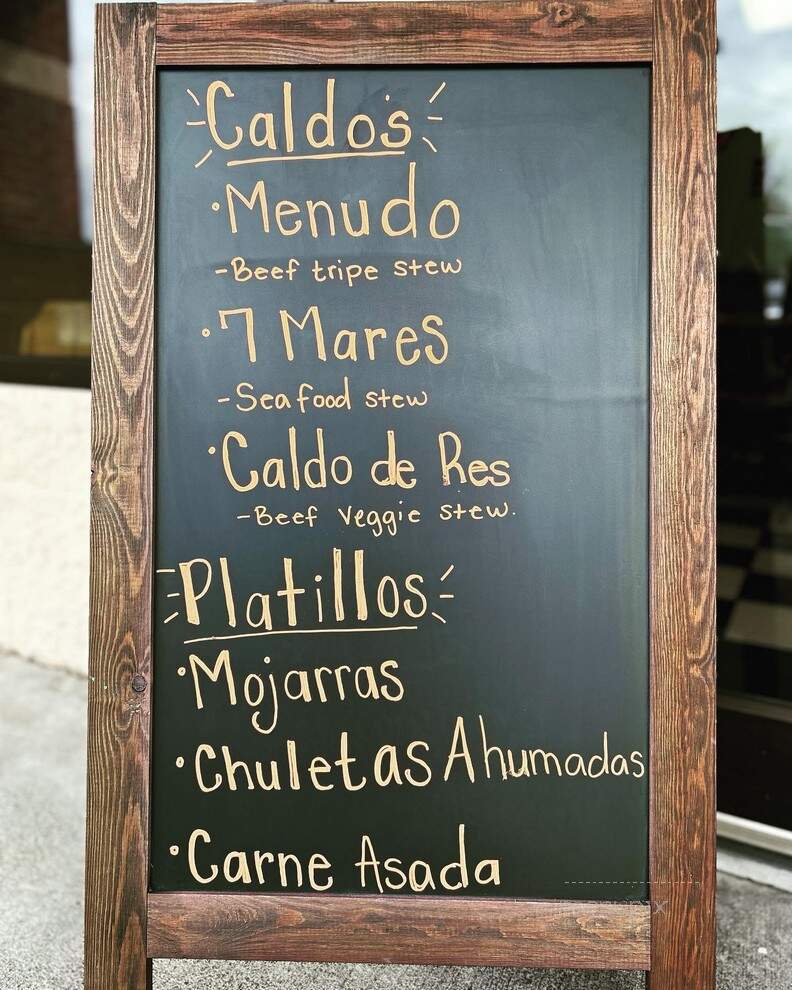 Caldo's
·Menudo
-Beef tripe stew
·7 Mares
-Seafood stew
·Caldo de Res
-Beef Veggie stew.
Platillos
·Mojarras
·Chuletas Ahumadas
·Carne Asada